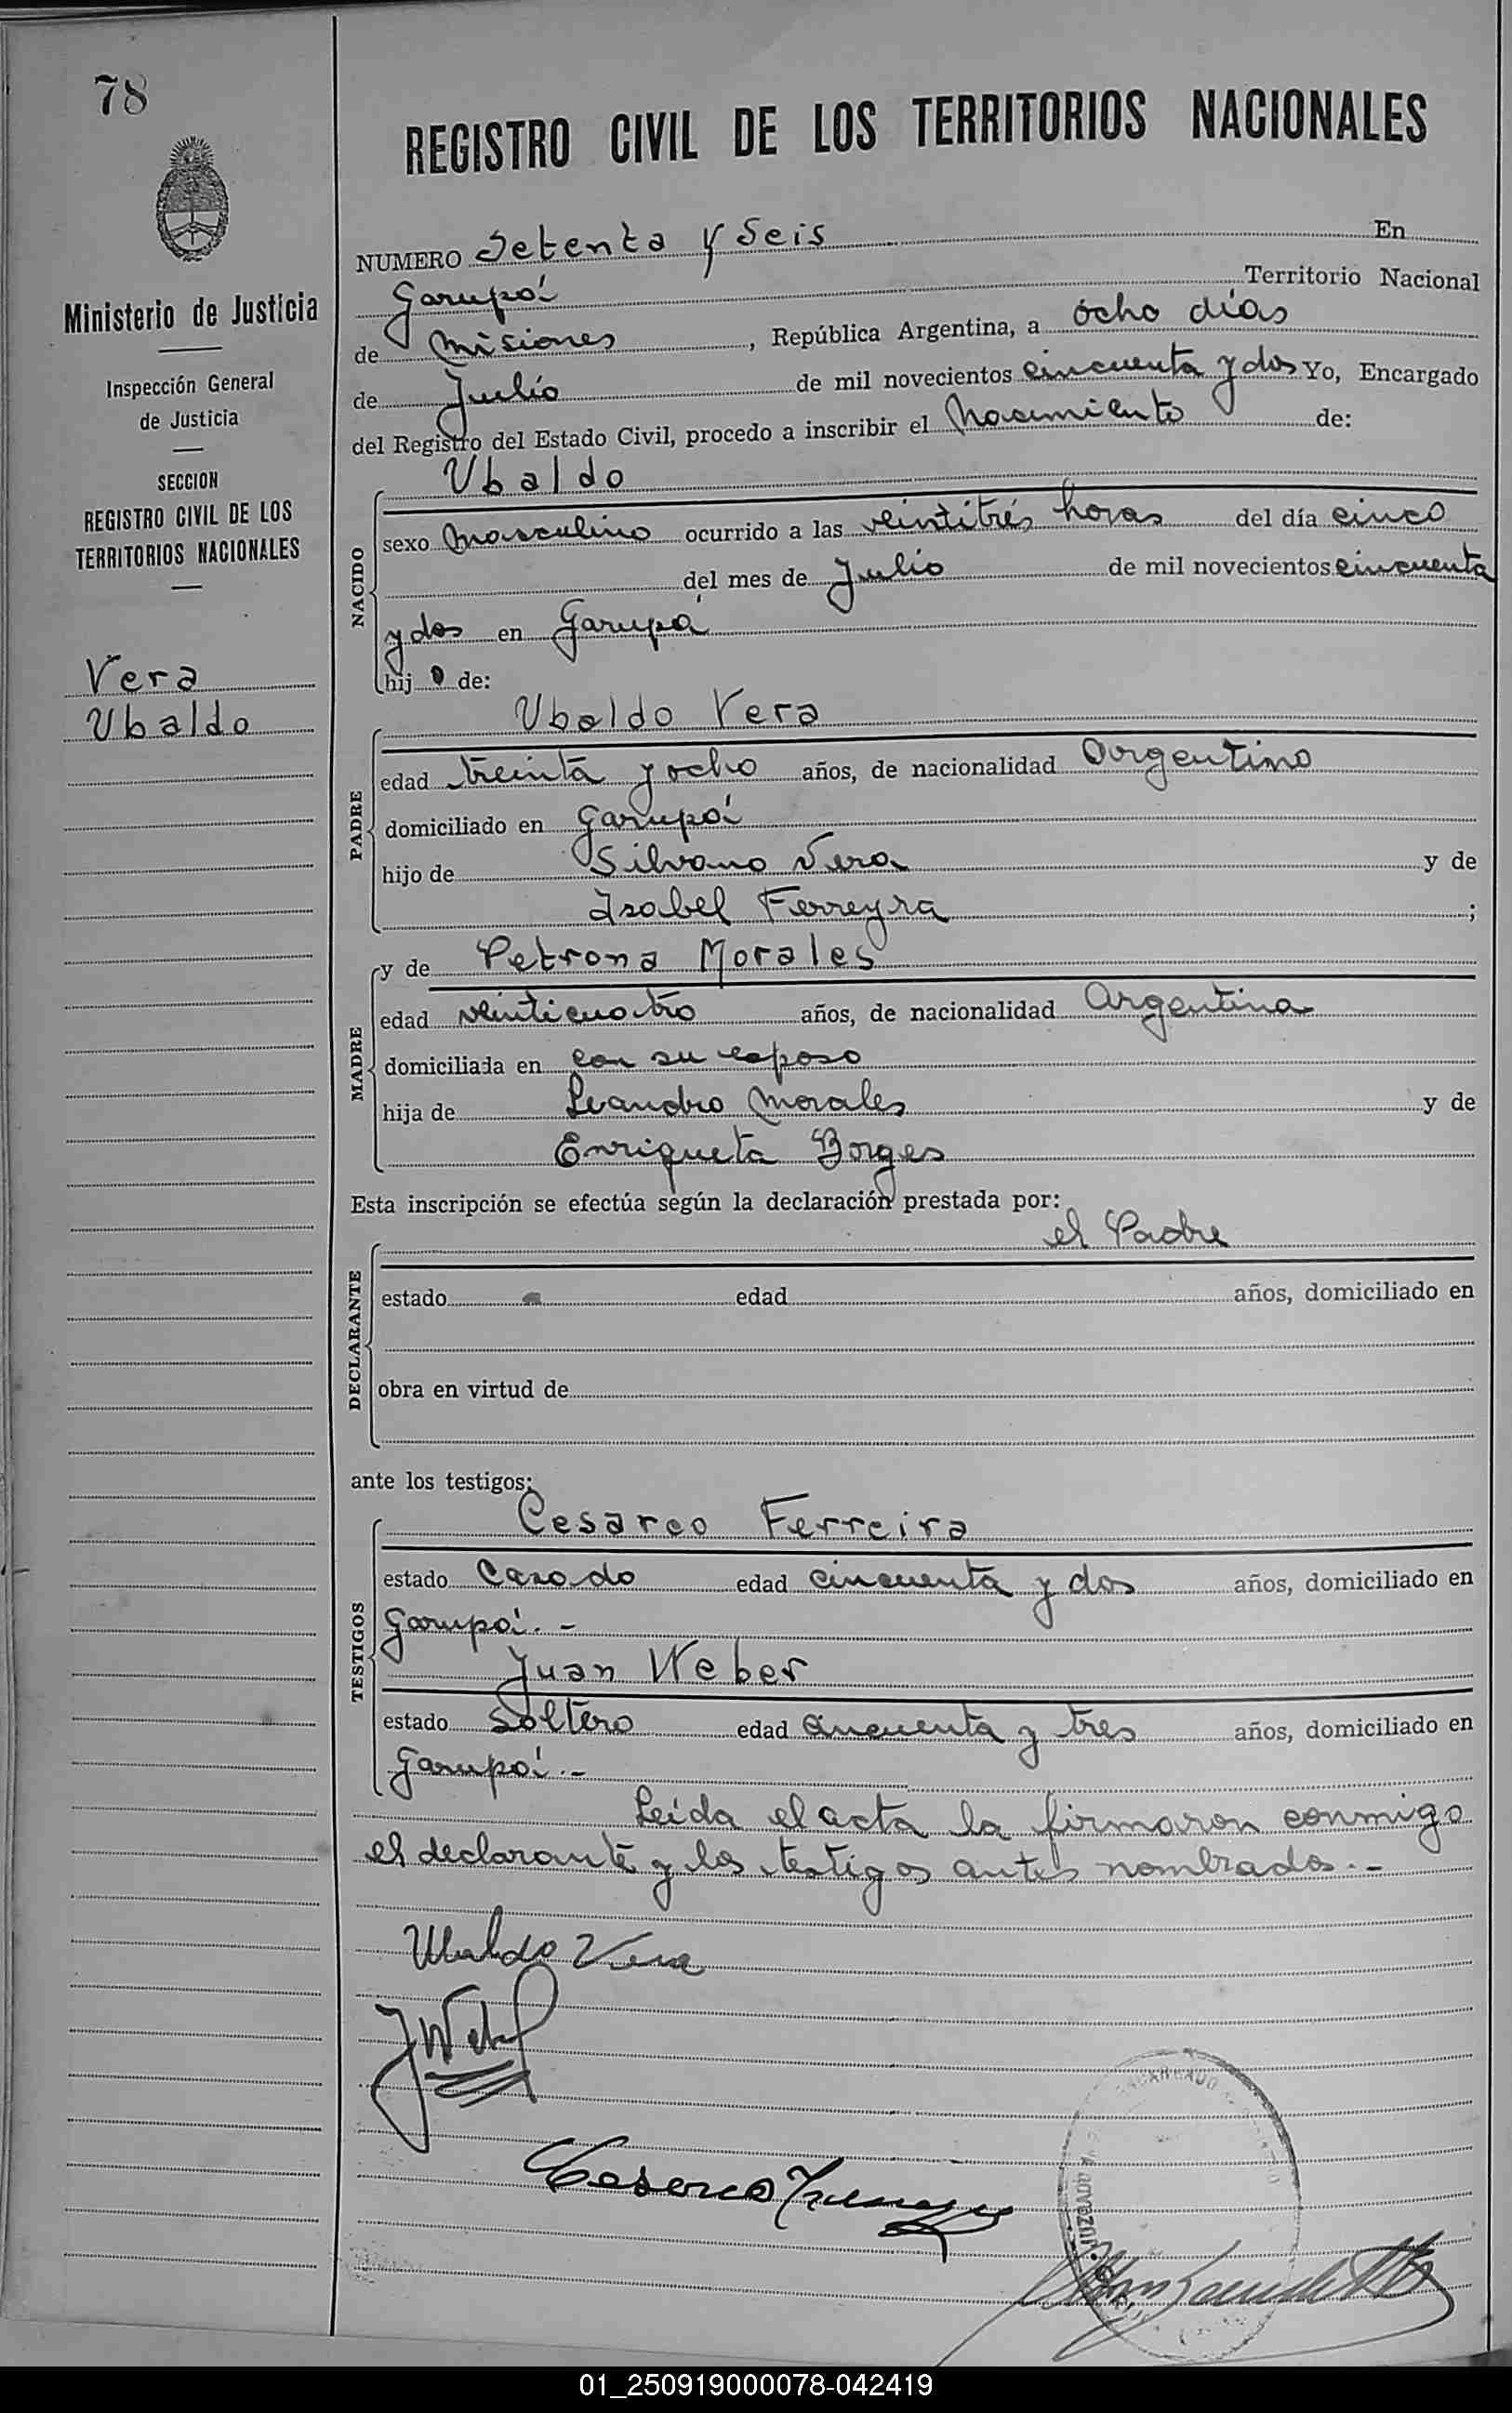 78
Ministerio de Justicia
Inspección General
de Justicia
SECCION
REGISTRO CIVIL DE LOS
TERRITORIOS NACIONALES
Vera
Ubaldo
REGISTRO CIVIL DE LOS TERRITORIOS NACIONALES
NUMERO Setenta y Seis En
Garupá Territorio Nacional
de Misiones, República Argentina, a ocho días
de Julio de mil novecientos cincuenta y dos Yo, Encargado
del Registro del Estado Civil, procedo a inscribir el Nacimiento de:
NACIDO
Ubaldo
sexo masculino ocurrido a las veintitrés horas del día cinco
del mes de Julio de mil novecientos cincuenta
y dos en Garupá
hij o de:
PADRE
Ubaldo Vera
edad treinta y ocho años, de nacionalidad Argentino
domiciliado en Garupá
hijo de Silvano Vera y de
Isabel Ferreyra ;
MADRE
y de Petrona Morales
edad veinticuatro años, de nacionalidad Argentina
domiciliada en con su esposo
hija de Leandro Morales y de
Enriqueta Borges
Esta inscripción se efectúa según la declaración prestada por:
DECLARANTE
el Padre
estado edad años, domiciliado en
obra en virtud de
ante los testigos:
TESTIGOS
Cesareo Ferreira
estado Casado edad cincuenta y dos años, domiciliado en
Garupá. -
Juan Weber
estado Soltero edad cincuenta y tres años, domiciliado en
Garupá. -
Leída el acta la firmaron conmigo
el declarante y los testigos antes nombrados. -
Ubaldo Vera
JWeber
Cesareo
ENCARGADO
JUZGADO
01_250919000078-042419